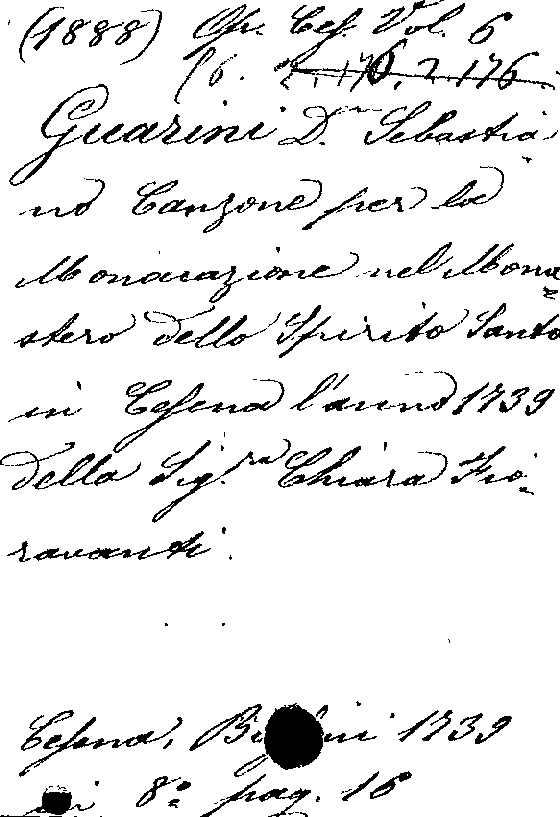 (1888) Op. Ces. Vol. 6
16.
Guarini D.n Sebastia-
no Canzone per la
Monacazione nel Mona=
stero dello Spirito Santo
in Cesena l'anno 1739
della Sig.ra Chiara Fio-
ravanti.
Cesena, 1739
in 8º pag. 16